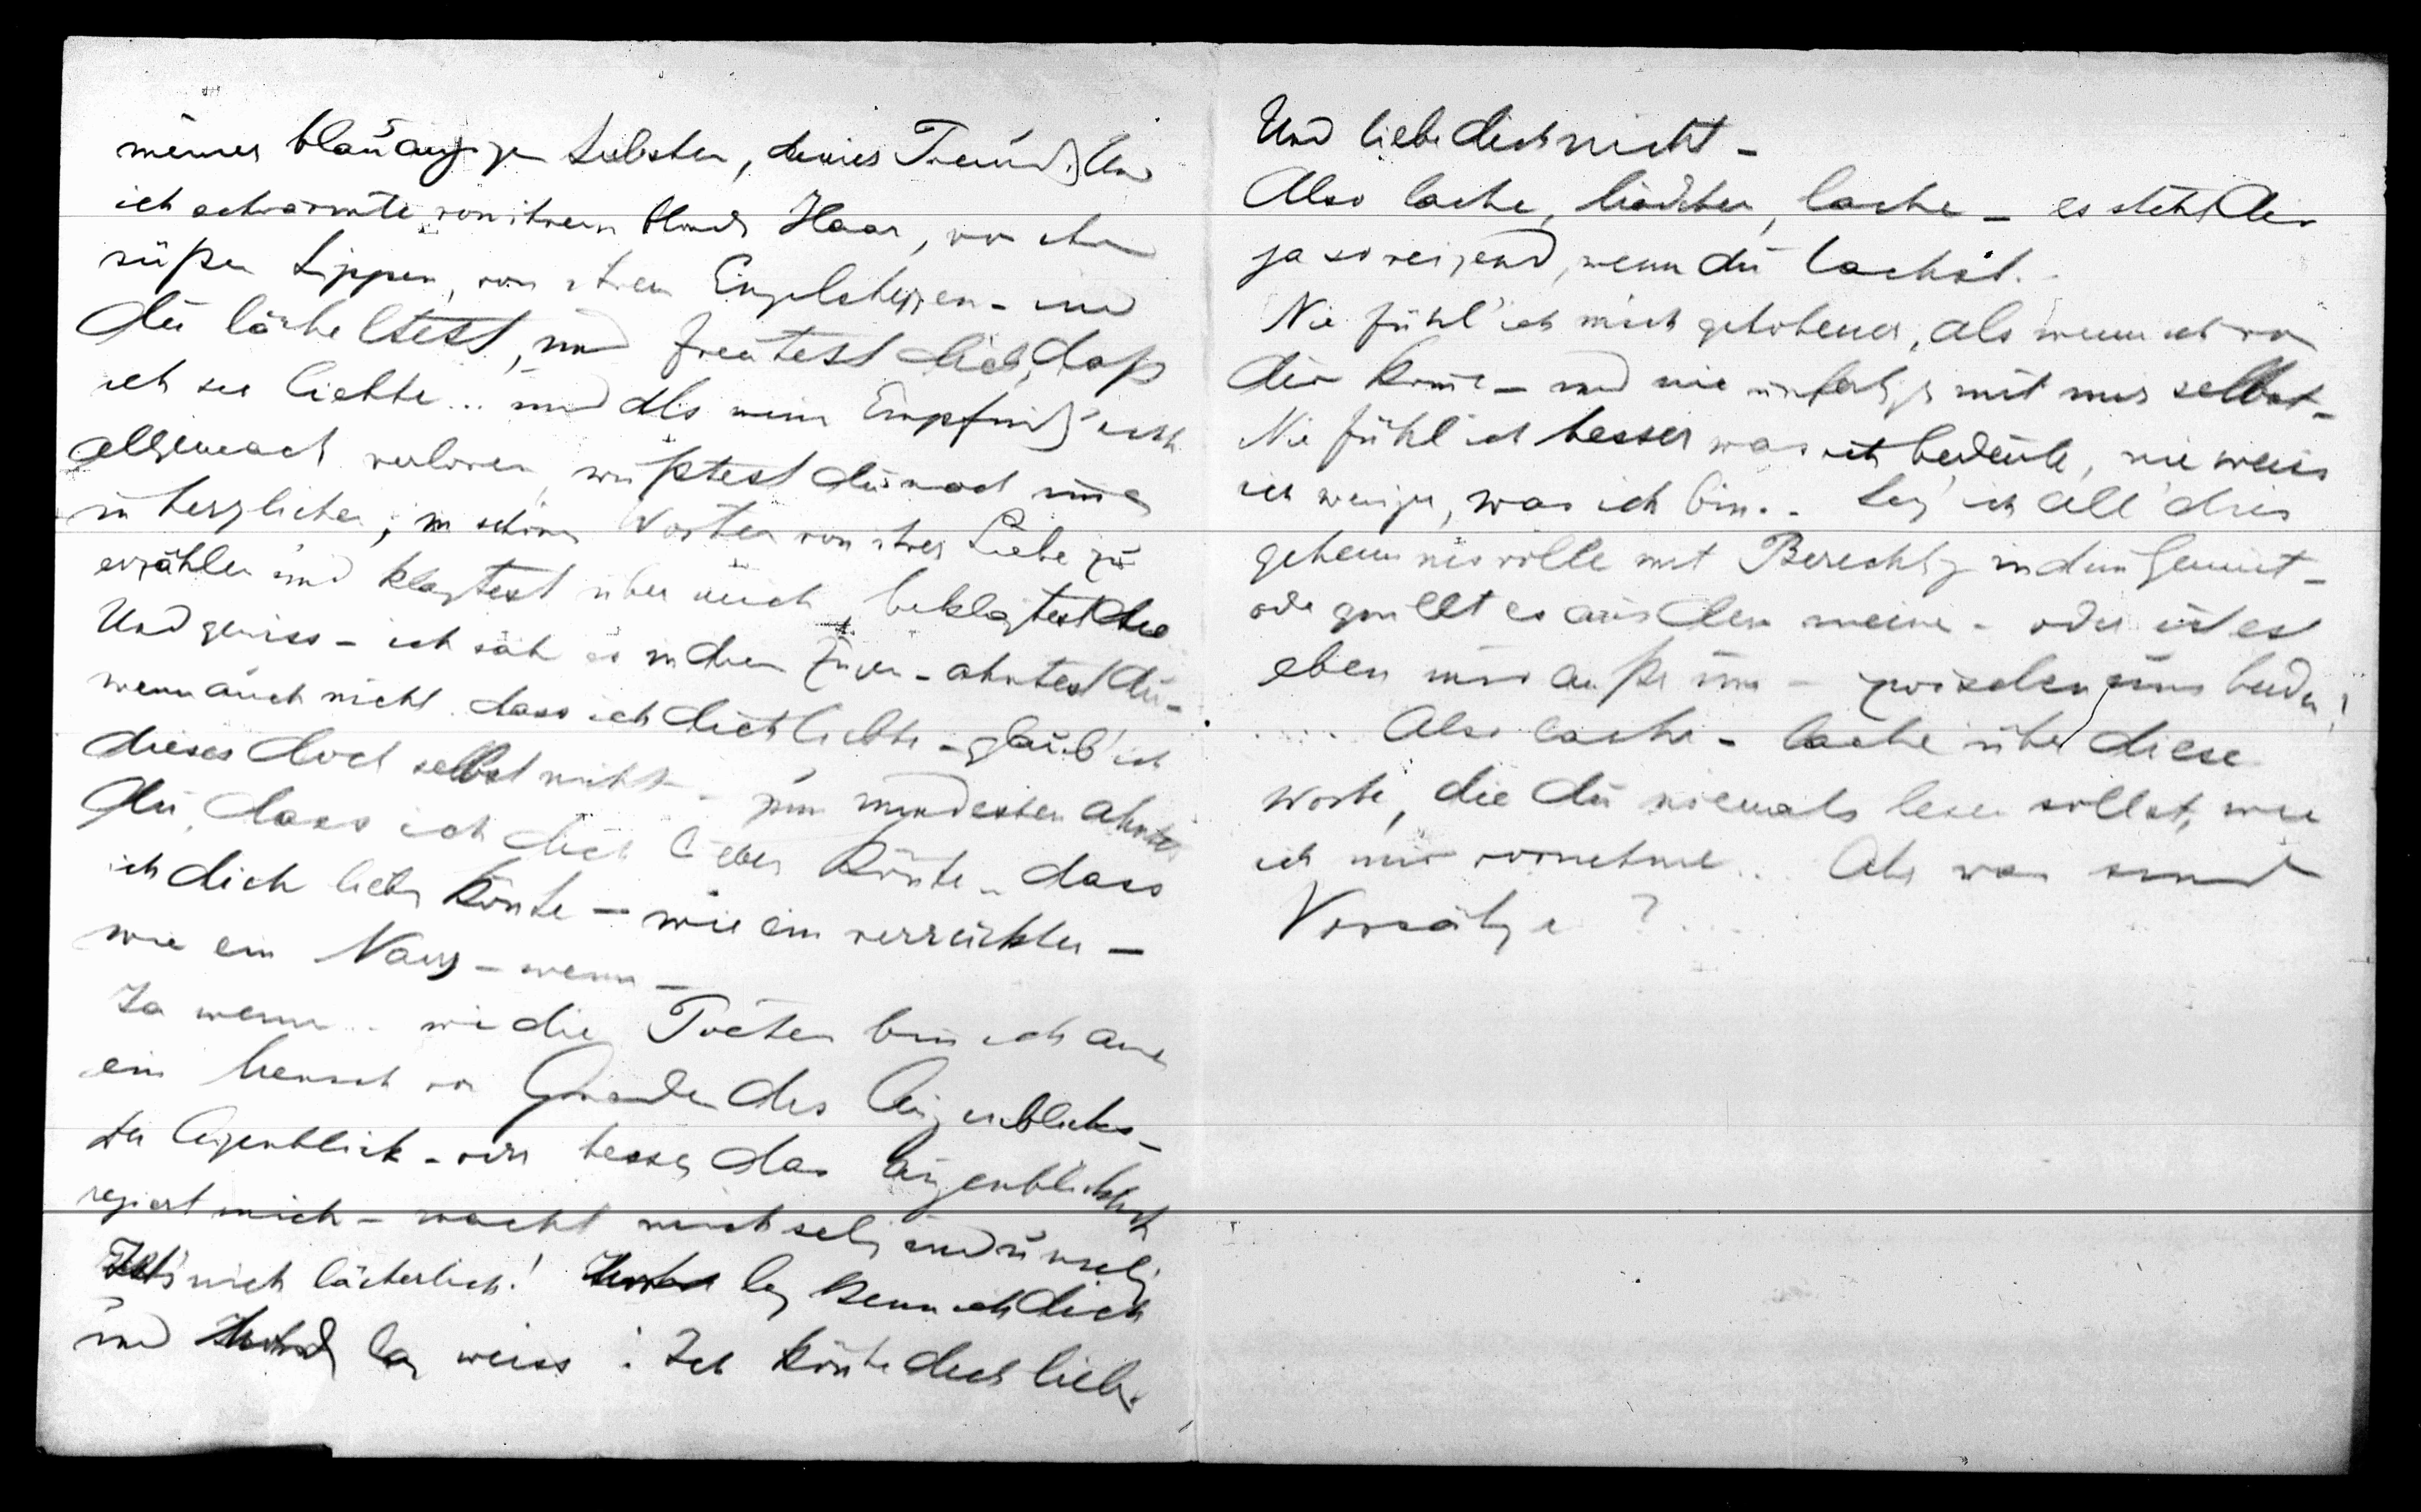 meiner blauäugigen Liebsten, deiner Freundin
ich schwärmte von ihrem blonden Haar, von ihren
süßen Lippen, von ihrem Engelsherzen – und
du lächeltest, und freutest dich, daß
ich sie liebte... und als mein Empfinden sich
allgemach verloren, wußtest du noch immer
in herzlichen, in schönen Worten von ihrer Liebe zu
erzählen und klagtest über mich, beklagtest sie
Und gewiss – ich sah es in deinen Zügen – ahntest du –
wenn auch nicht dass ich dich liebte – glaub' ich
dieses doch selbst nicht – zum mindesten ahntest
du, dass ich dich lieben könnte – dass
ich dich lieben könnte – wie ein verrückter –
wie ein Narr – wenn –
Ja wenn.. wie die Poeten bin ich auch
ein Mensch von Gnaden des Augenblickes –
der Augenblick – oder besser das Augenblickliche
regiert mich – macht mich selig und unselig
Ist's nicht lächerlich! lang kenn ich dich
und lang weiss : Ich könnte dich lieben
Und liebe dich nicht –
Also lache, Mädchen, lache – es steht dir
ja so reizend, wenn du lachst.
Nie fühl' ich mich gehobener, als wenn ich von
dir komme – und nie unfertiger mit mir selbst –
Nie fühl ich besser was ich bedeute, nie weiss
ich weniger, was ich bin.. Leg' ich all' dies
geheimnisvolle mit Berechtigung in dein Gemüt –
oder quillt es aus dem meinen – oder ist es
eben nur außer uns – zwischen uns beiden?
.... Also lache – lache über diese
Worte, die du niemals lesen sollst, wie
ich mir vornehme.. Aber was sind
Vorsätze ?...